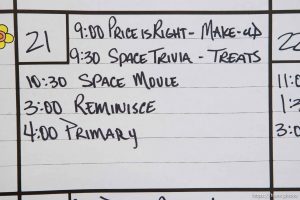 21
9:00 PRICE IS RIGHT - MAKE-UP
9:30 SPACE TRIVIA - TREATS
10:30 SPACE MOVIE
3:00 REMINISCE
4:00 PRIMARY
22
11:
1:
3:0